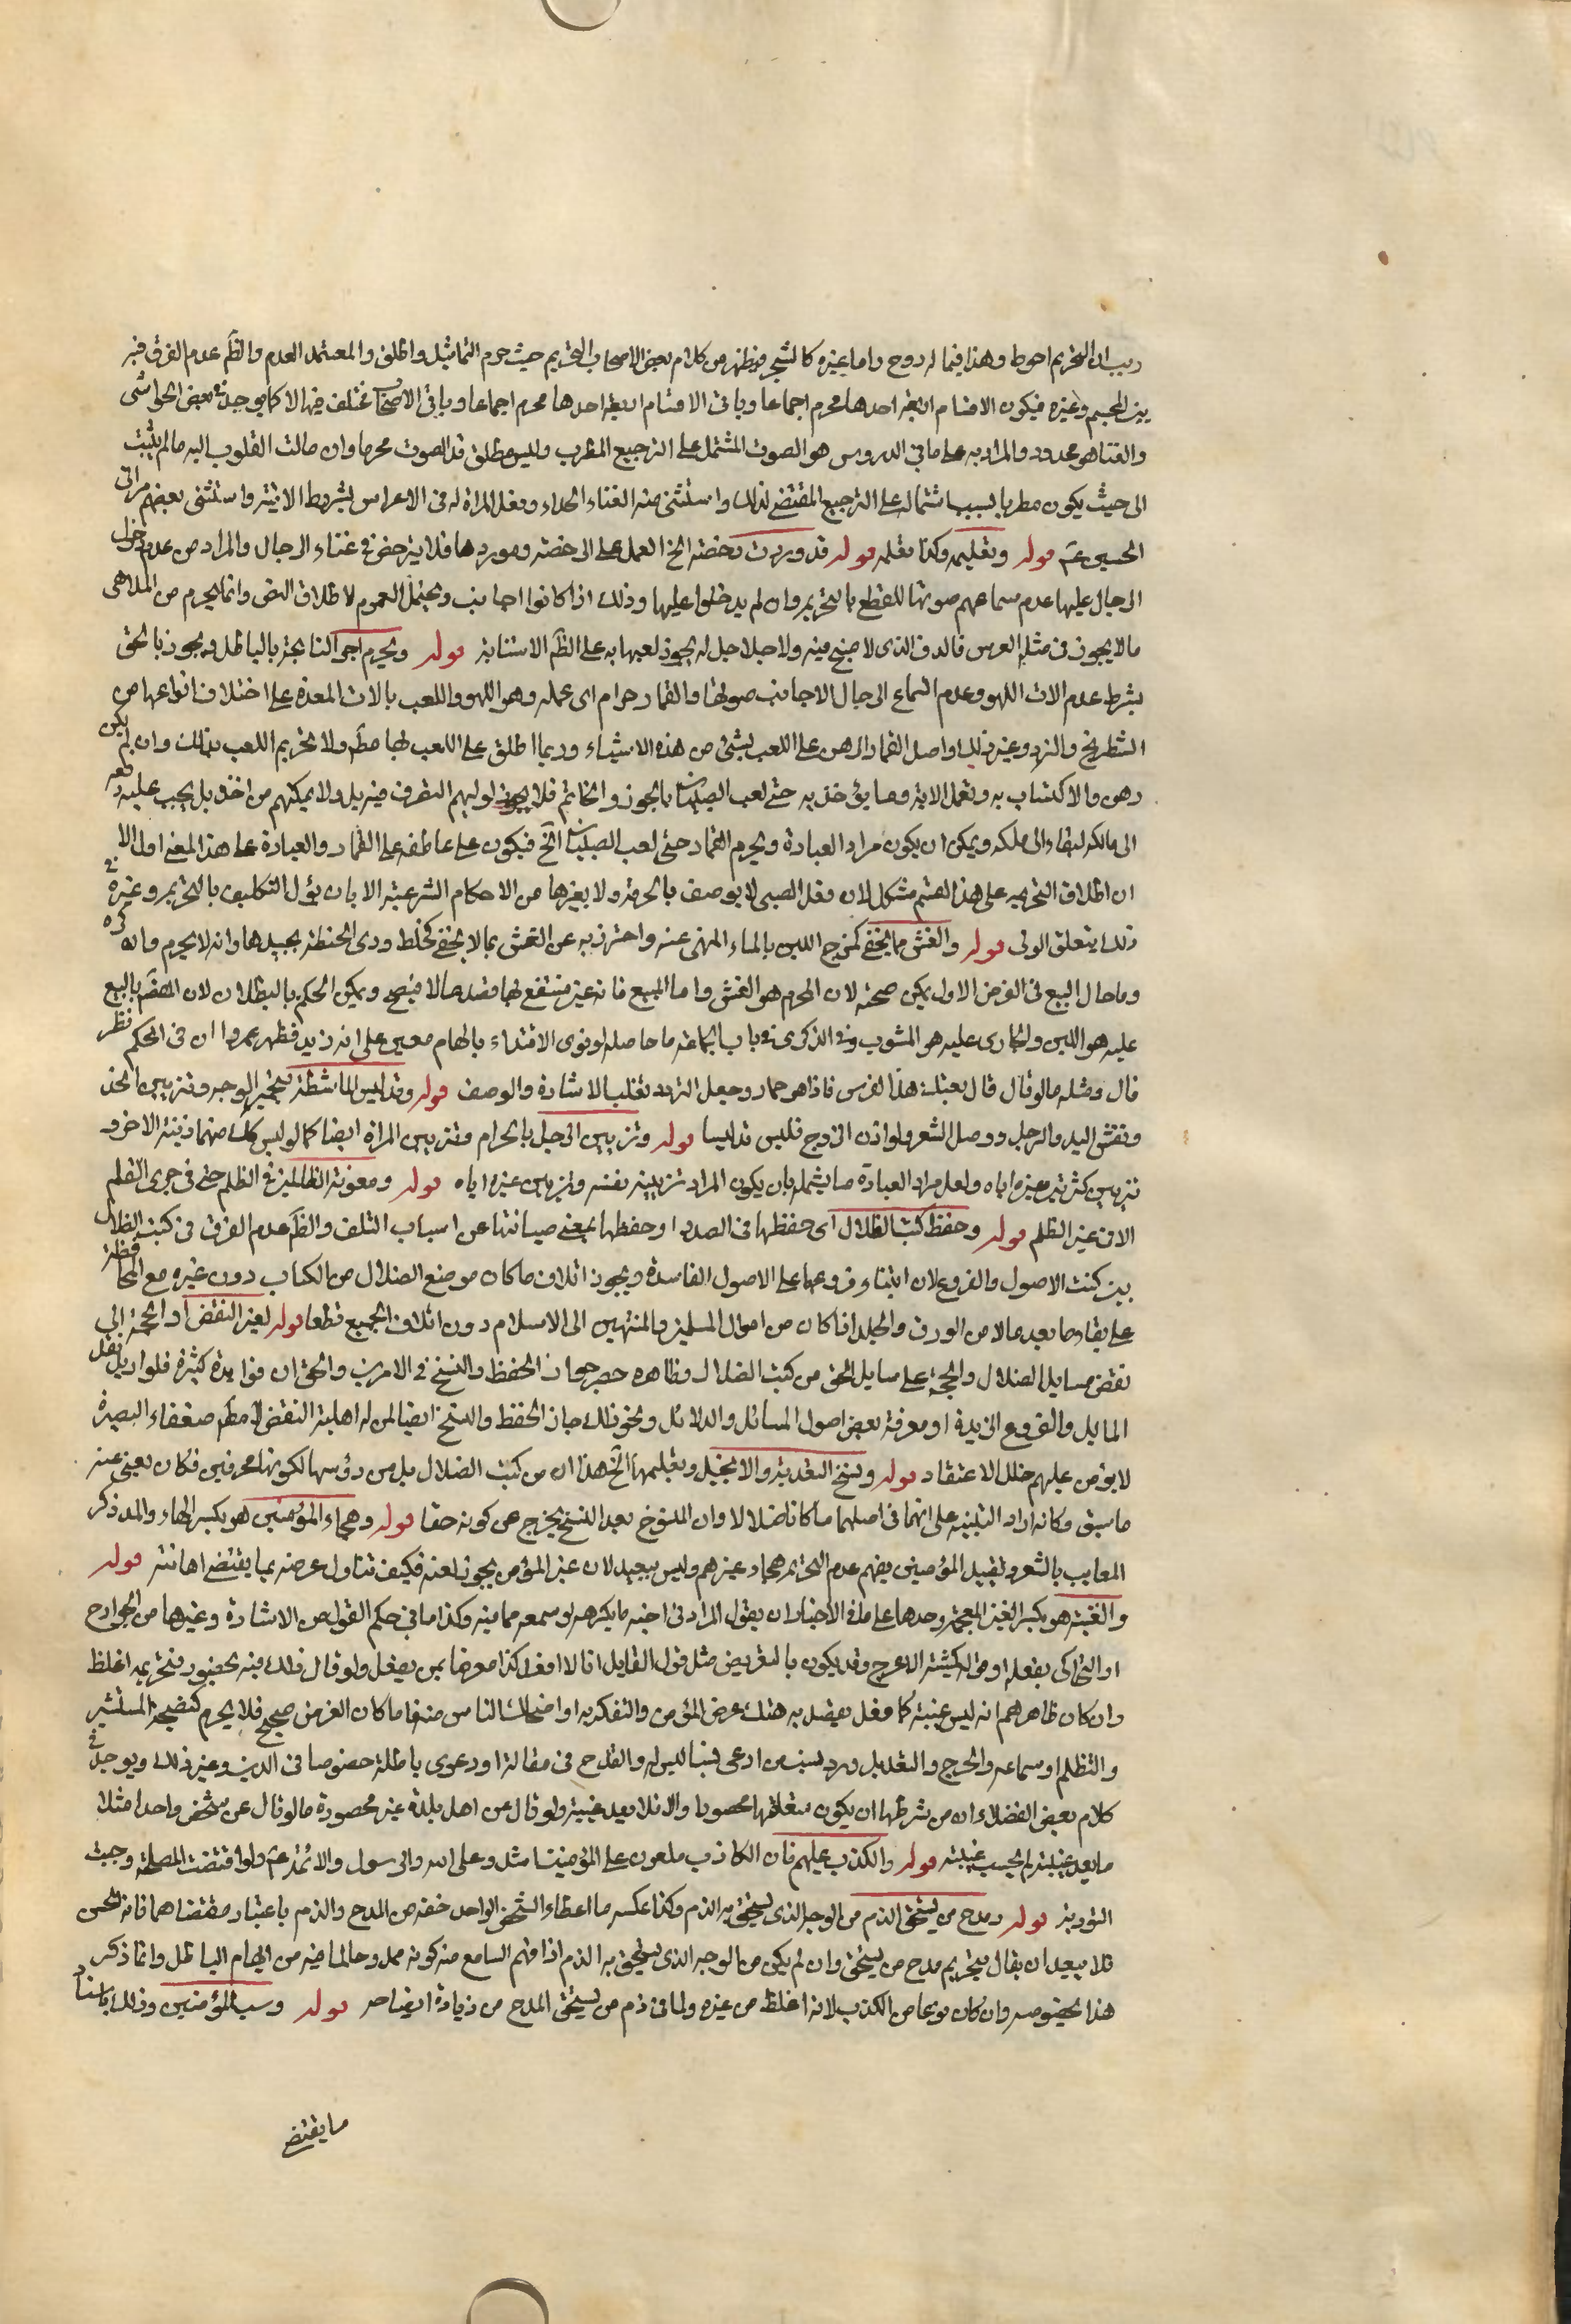 ريب ان التحريم احوط وهذا فيما له روح واما غيره كالشجر فيظهر من كلام بعض الاصحاب التحريم حيث حرم التماثيل واطلق والمعتمد العدم والظم عدم الفرق فيه
بين المجسم وغيره فيكون الاقسام اربعة احدها محرم اجماعا وباقى الاقسام اربعة احدها محرم اجماعا وباقى الاقسام مختلف فيها لا كما يوجد فى بعض الحواشى
والغناء هو ممدود والمراد به على ما في الدروس هو الصوت المشتمل على الترجيع المطرب وليس مطلق مد الصوت محرما وان مالت القلوب اليه ما لم يثبت
الى حيث يكون مطربا بسبب اشتماله على الترجيع المقتضى لذلك واستثنى منه الغناء الحداء وفعل المراة له فى الاعراس بشروط الاتية واستثنى بعضهم مراثى
الحسين عم قوله وتعليمه وكذا تعلمه قوله قد وردت رخصة الخ العمل على الرخصة وموردها فلا يترخص فى غناء الرجال والمراد من عدم دخول
الرجال عليها عدم سماعهم صوتها للقطع بالتحريم وان لم يدخلوا عليها وذلك اذا كانوا اجانب ويحتمل العموم لاطلاق النص وانما يحرم من الملاهى
ما لا يجوز فى مثل العرس فالدف الذى لا صنج فيه ولا جلاجل له يجوز لعبها به على الظم الاستثناء قوله ويحرم اجر النائحة بالباطل ويجوز بالحق
بشرط عدم الات اللهو وعدم اسماع الرجال الاجانب صوتها والقمار حرام اى عمله وهو اللهو واللعب بالات المعدة على اختلاف انواعها من
الشطرنج والنرد وغير ذلك واصل القمار الرهن على اللعب بشئ من هذه الاشياء وربما اطلق على اللعب بها مطم ولا تحريم اللعب بذلك وان لم يكن
رهن والاكتساب به وتعمل الاية وما يؤخذ به حتى لعب الصبيان بالجوز والخاتم فلا يجوز لوليهم التصرف فيه بل ولا يمكنهم من اخذه بل يجب عليه دفعه
الى مالكه لبقائه على ملكه ويمكن ان يكون مراد العبادة ويحرم القمار حتى لعب الصبيان الخ فيكون على عاطفه على القمار والعبادة على هذا المعنى اول الا
ان اطلاق التحريم على هذا القسم مشكل لان فعل الصبى لا يوصف بالحرمة ولا بغيرها من الاحكام الشرعية الا بان يؤل التكليف بالتحريم وغيره فى
ذلك يتعلق الولى قوله والغش بما يخفى كمزج اللبن بالماء المنهى عنه واحترز به عن الغش بما لا يخفى كخلط ردى الحنطة بجيدها وانه لا يحرم وانه كره
وما حال البيع فى الفرض الاول يمكن صحته لان المحرم هو الغش واما المبيع فانه عين منتفع بها مقصودا فيصح ويمكن الحكم بالبطلان لان المقصود بالبيع
عليه هو اللبن والجارى عليه هو المشوب وفى الذكرى فى باب الجماعة ما حاصله لو نوى الاقتداء بامام معين على انه زيد فظهر عمروا ان فى الحكم نظر
قال ومثله ما لو قال قال بعتك هذا الفرس فاذا هو حمار وجعل التردد تغليب الاشارة والوصف قوله وتدليس الماشطة بتحمير الوجه وتزيين الخد
ونقش اليد والرجل ووصل الشعر ولو اذن الزوج فليس تدليسا قوله وتزيين الرجل بالحرام وتزيين المراة ايضا كما لو لبس كل منهما زينة الاخر و
تزيين كثر تبرع غيره اياه ولعل مراد العبادة ما يشمله بان يكون المراد تزيينه نفسه وتزيين غيره اياه قوله ومعونة الظالمين فى الظلم حتى فى جرى القلم
الا فى غير الظلم قوله وحفظ كتب الضلال اى حفظها فى الصدر او حفظها بمعنى صيانتها عن اسباب التلف والظم عدم الفرق فى كتب الضلال
بين كتب الاصول والفروع لان ابتناء فروعها على الاصول الفاسدة ويجوز اتلاف ما كان موضع الضلال من الكتاب دون غيره مع المحافظة
على بقاء ما يعد مالا من الورق والجلد اذا كان من اموال المسلمين والمنتهين الى الاسلام دون اتلاف الجميع قطعا قوله لغير النقض او الحجة اى
نقض مسايل الضلال والحجة على مسايل الحق من كتب الضلال وظاهره حصر جواز الحفظ والنسخ فى الامرين والحق ان فوايده كثيرة فلو اريد نقل
المسايل والفروع الزيدية او معرفة بعض اصول المسائل والدلائل ونحو ذلك جاز الحفظ والنسخ ايضا لمن له اهلية النقض لا مطم ضعفاء البصيرة
لا يؤمن عليهم خلل الاعتقاد قوله ونسخ التورية والانجيل وتعليمها الخ هذان من كتب الضلال بل من رؤسها لكونها محرفين فكان يغنى عنه
ما سبق وكانه اراد التنبيه على انهما فى اصلهما ما كانا ضلالا وان المنسوخ بعد النسخ يخرج عن كونه حقا قوله وهجاء المؤمنين هو بكسر الهاء والمد ذكر
المعايب بالشعر وتقييد المؤمنين يفهم عدم التحريم هجاء غيرهم وليس ببعيد لان غير المؤمن يجوز لعنه فكيف تناول عرضه بما يقتضى اهانته قوله
والغيبة هو بكسر الغين المعجمة وحدها على ما فى الاخبار ان يقول المراد فى اخيه ما يكرهه لو سمعه مما فيه وكذا ما فى حكم القول من الاشارة وغيرها من الجوارح
او التحاكى بفعله او قوله كمشية الاعرج وقد يكون بالتعريض مثل قول القايل انا لا افعل كذا معرضا بمن يفعل ولو قال ذلك فيه بحضوره فتحريمه اغلظ
وان كان ظاهرهم انه ليس غيبة كل فعل يقصد به هتك عرض المؤمن والتفكه به او اضحاك الناس منه فاما كان الغرض صحيح فلا يحرم كنصيحة المستشير
والتظلم او سماعه والجرح والتعديل ورد نسب من ادعى نسبا ليس له والقدح فى مقالة او دعوى باطلة خصوصا فى الدين وغير ذلك ويوجد فى
كلام بعض الفضلاء ان من شرطها ان يكون متعلقها محصورا والا فلا يعد غيبة ولو قال عن اهل بلدة غير محصورة ما لو قال عن شخص واحد مثلا
ما يعد غيبة لم يحسب غيبة قوله والكذب عليهم فان الكاذب ملعون على المؤمنين مثله وعلى الله والرسول والائمة عم ولو اقتضت المصلحة وجبت
التورية قوله ومدح من يستحق الذم من الوجه الذى يستحق به الذم وكذا عكسه ما اعطاء الشخص الواحد حقه من المدح والذم باعتبار مقتضاهما فانه لحسن
فلا يبعد ان يقال بتحريم مدح من يستحق وان لم يكن من الوجه الذى يستحق به الذم اذا فهم السامع منه كونه ممدوحا لما فيه من ايهام الباطل وانما ذكر
هذا بخصوصه وان كان نوعا من الكذب لانه اغلظ من غيره ولما فى ذم من يستحق المدح من زيادة ايضاحه قوله وسب المؤمنين وذلك باسناد
ما يقتضى